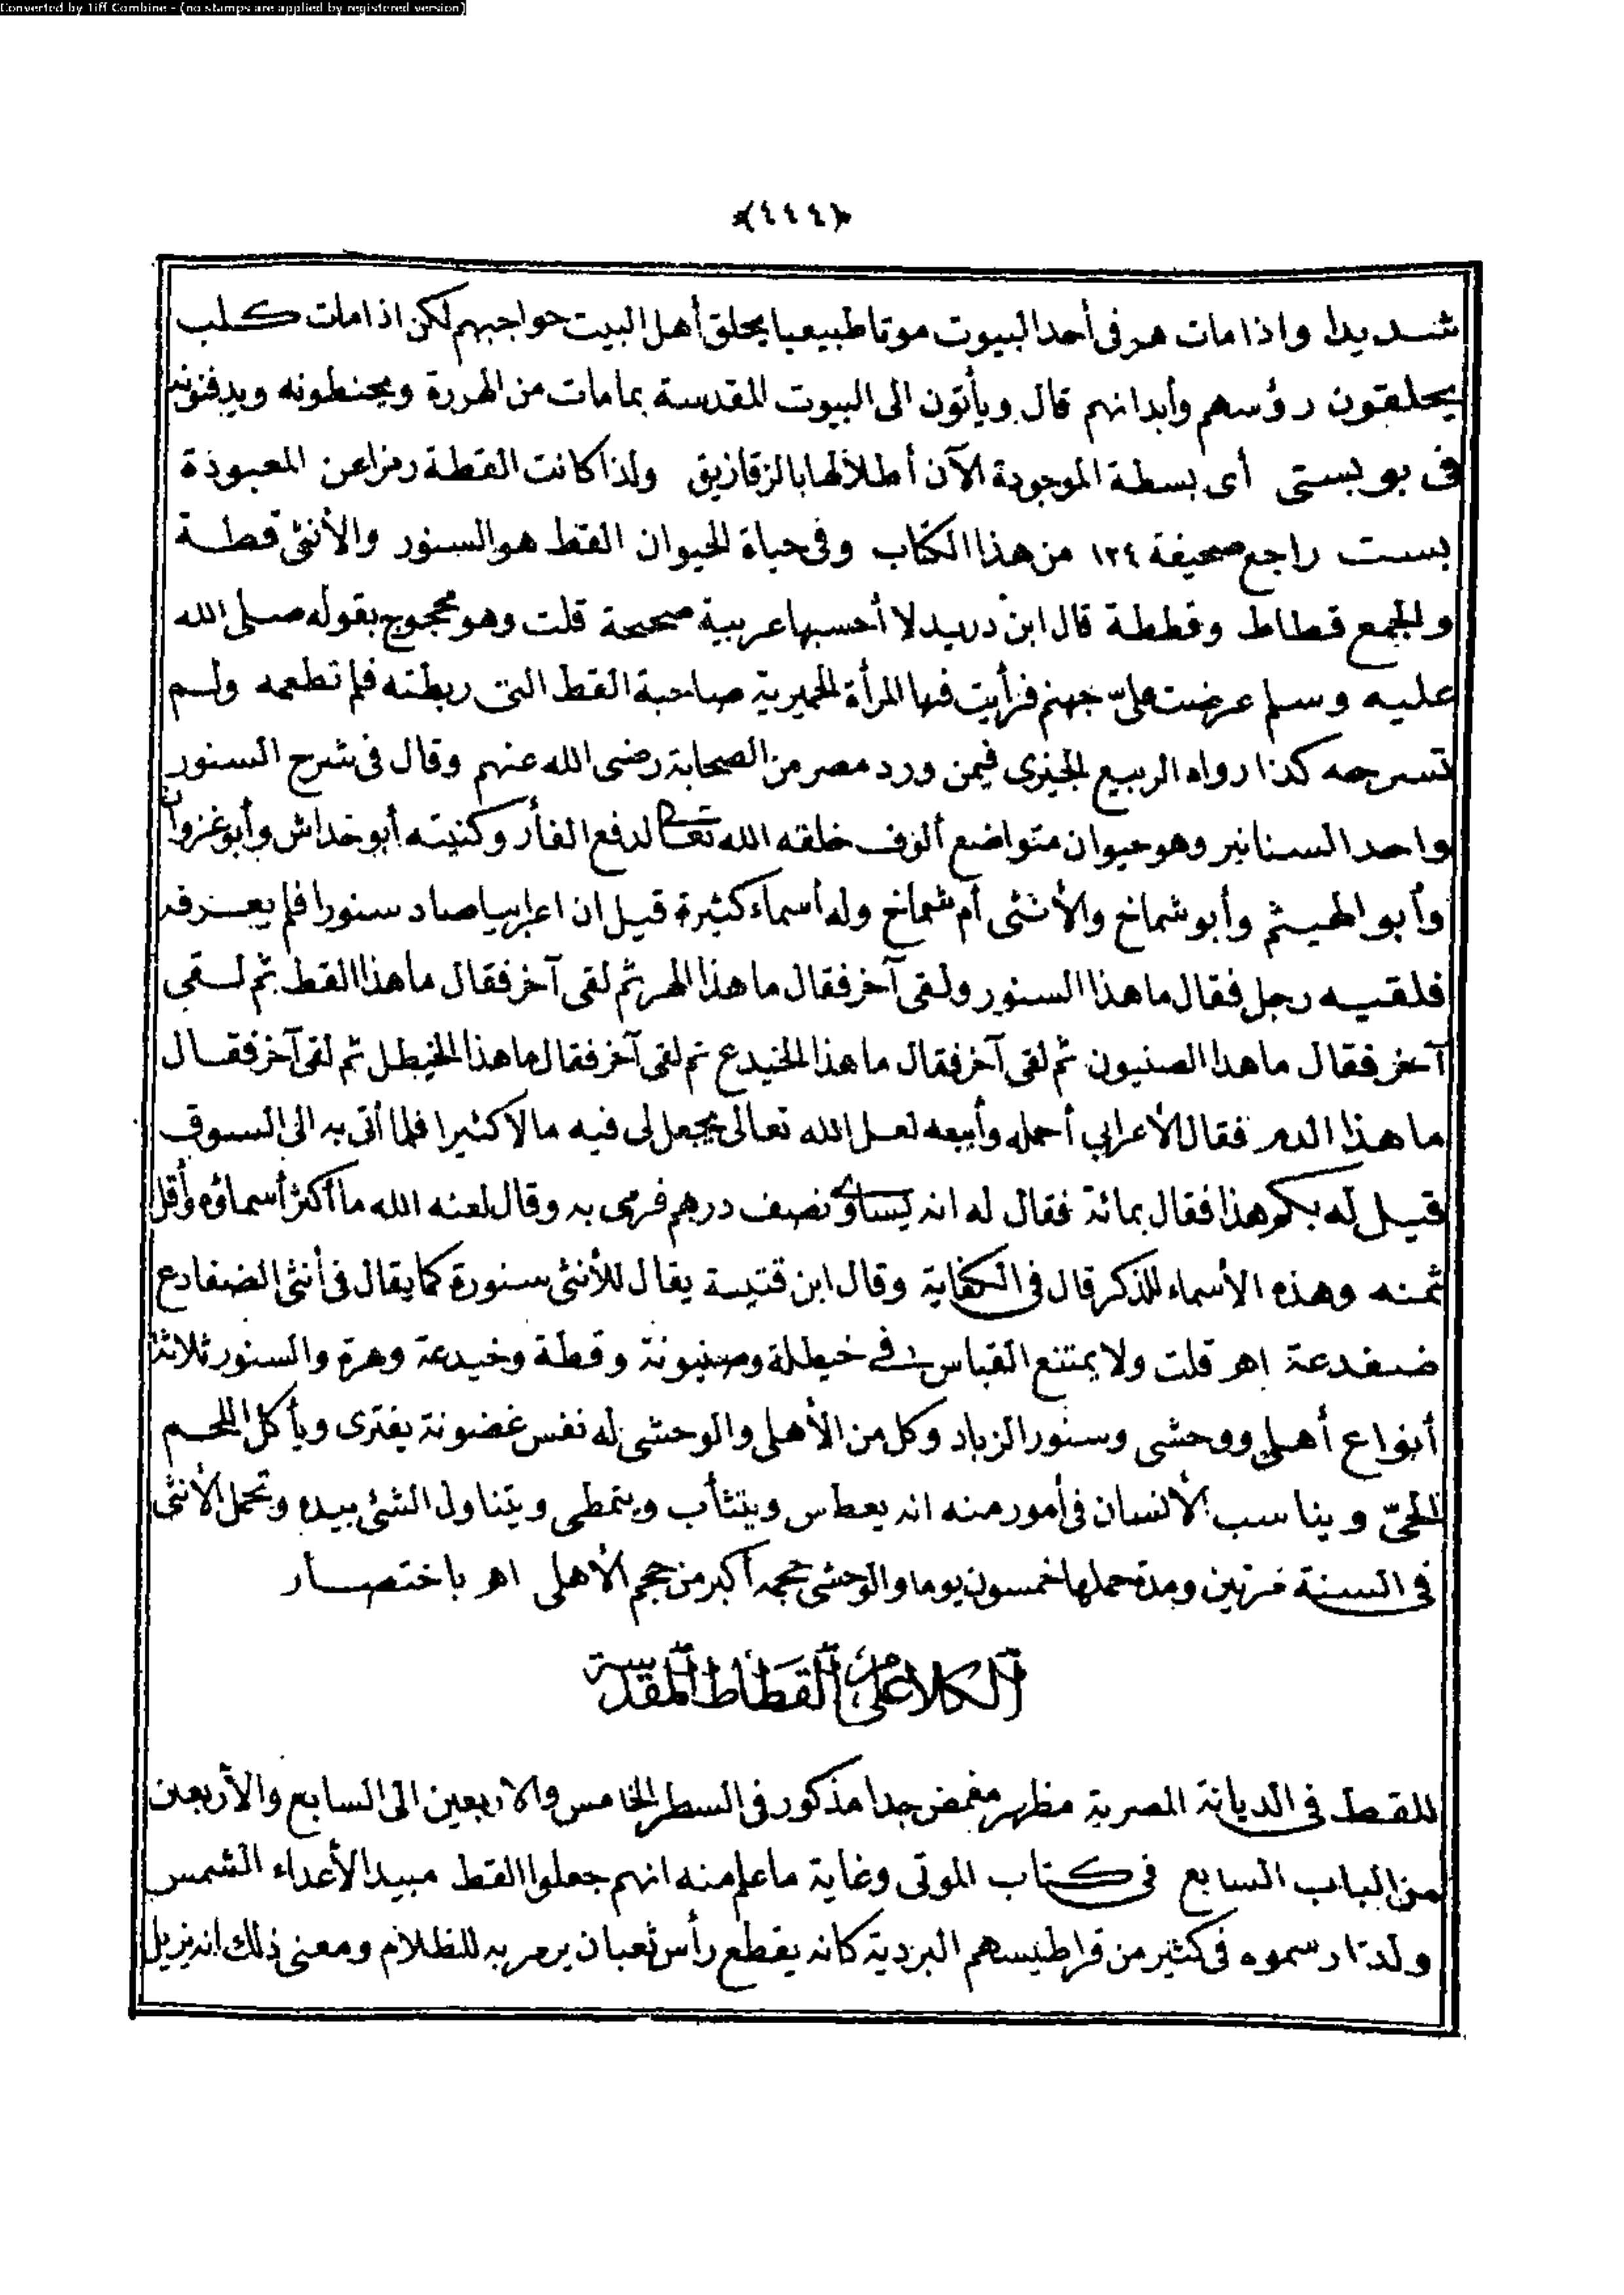 Converted by Tiff Combine - (no stamps are applied by registered version)
﴿٤٤٤﴾
شديدا واذا مات هر فى أحد البيوت موتا طبيعيا يحلق أهل البيت حواجبهم لكن اذا مات كلب
يحلقون رؤسهم وأبدانهم قال ويأتون الى البيوت المقدسة بمامات من الهررة ويحنطونه ويدفنونه
فى بوبستى أى بسطة الموجودة الآن أطلالها بالزقازيق ولذا كانت القطة رمزا عن المعبودة
بست راجع صحيفة ١٢٤ من هذا الكتاب وفى حياة الحيوان القط هو السنور والأنثى قطة
والجمع قطاط وقططة قال ابن دريد لا أحسبها عربية صحيحة قلت وهو محجوج بقوله صلى الله
عليه وسلم عرضت علىّ جهنم فرأيت فيها المرأة الحميرية صاحبة القط التى ربطته فلم تطعمه ولم
تسرحه كذا رواه الربيع الجيزى فيمن ورد مصر من الصحابة رضى الله عنهم وقال فى شرح السنور
واحد السنانير وهو حيوان متواضع ألوف خلقه الله تعالى لدفع الفأر وكنيته أبو خداش وأبو غزوان
وأبو الهيثم وأبو شماخ والأنثى أم شماخ وله أسماء كثيرة قيل ان اعرابيا صاد سنورا فلم يعرفه
فلقيه رجل فقال ما هذا السنور ولقى آخر فقال ما هذا الهر ثم لقى آخر فقال ما هذا القط ثم لقى
آخر فقال ما هذا الضيون ثم لقى آخر فقال ما هذا الخيدع ثم لقى آخر فقال ما هذا الخيطل ثم لقى آخر فقال
ما هذا الدم فقال الأعرابي أحمله وأبيعه لعل الله تعالى يجعل لى فيه مالا كثيرا فلما أتى به الى السوق
قيل له بكم هذا فقال بمائة فقال له انه يساوى نصف درهم فرمى به وقال لعنه الله ما أكثر أسماؤه وأقل
ثمنه وهذه الأسماء للذكر قال فى الكفاية وقال ابن قتيبة يقال للأنثى سنورة كما يقال فى أنثى الضفادع
ضفدعة اهر قلت ولا يمتنع القياس فى خيطلة وضيونة وقطة وخيدعة وهرة والسنور ثلاثة
أنواع أهلى ووحشى وسنور الزباد وكل من الأهلى والوحشى له نفس غضونة يفترى ويأكل اللحم
الحىّ ويناسب الأنسان فى أمور منه انه يعطس ويتثأب ويتمطى ويتناول الشئ بيده وتحمل الأنثى
فى السنة مرتين ومدة حملها خمسون يوما والوحشى حجمه أكبر من حجم الأهلى اهر باختصار
الكلام على القطاط المقدسة
للقط فى الديانة المصرية مظهر مغمض جدا مذكور فى السطر الخامس والاربعين الى السابع والأربعين
من الباب السابع فى كتاب الموتى وغاية ما علم منه انهم جعلوا القط مبيد الأعداء الشمس
ولذا رسموه فى كثير من قراطيسهم البردية كانه يقطع رأس ثعبان يرمز به للظلام ومعنى ذلك انه يزيل